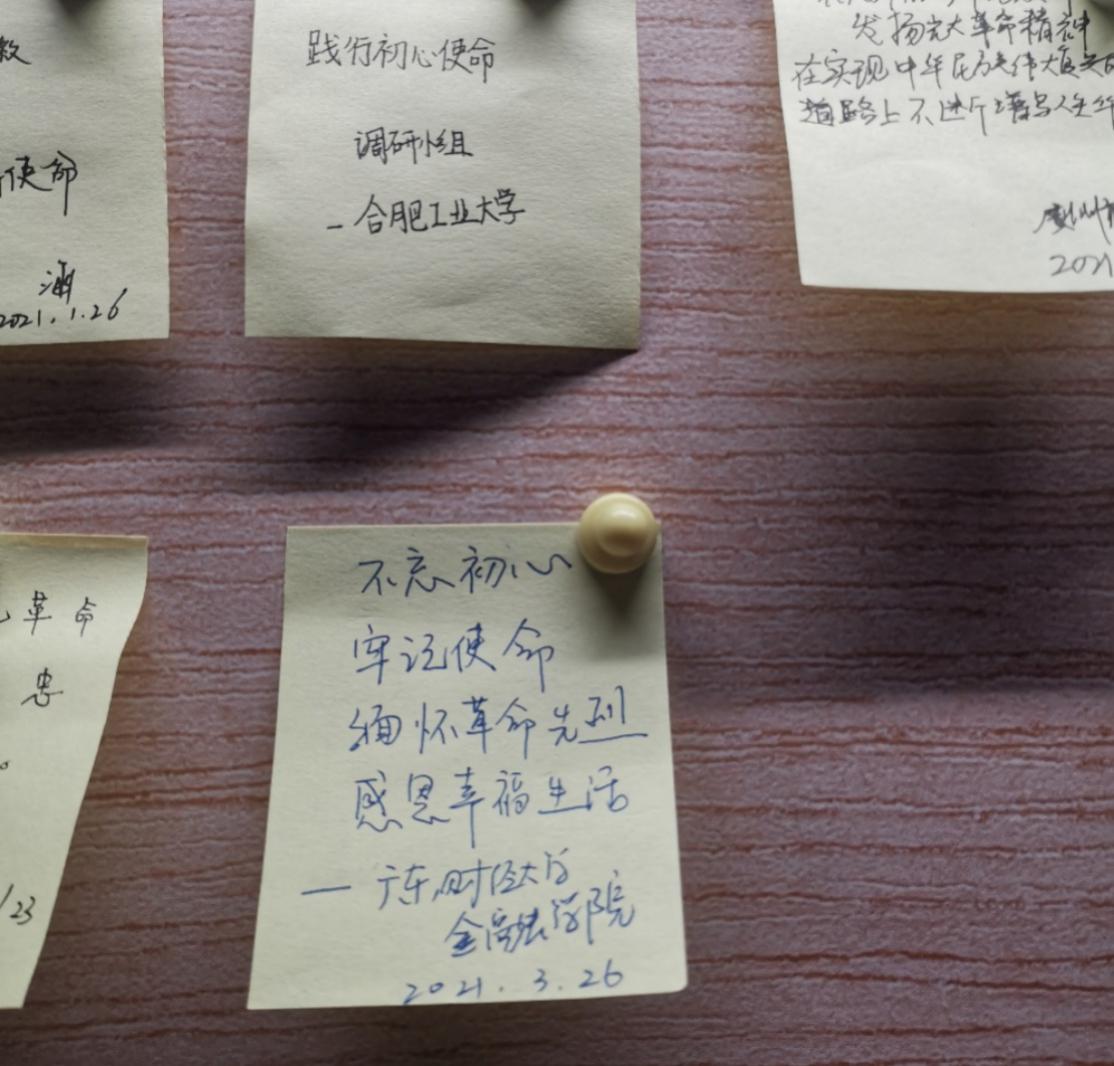 敎
使命
涵
2021.1.26
践行初心使命
调研小组
- 合肥工业大学
发扬光大革命精神
在实现中华民族伟大复兴的
道路上不
2021
革命
忠
。
/23
不忘初心
牢记使命
缅怀革命先烈
感恩幸福生活
— 广东财经大学
金融学院
2021.3.26